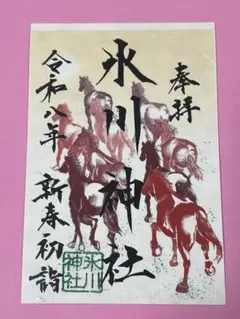 奉拝
氷川神社
令和八年 新春初詣
氷川
神社